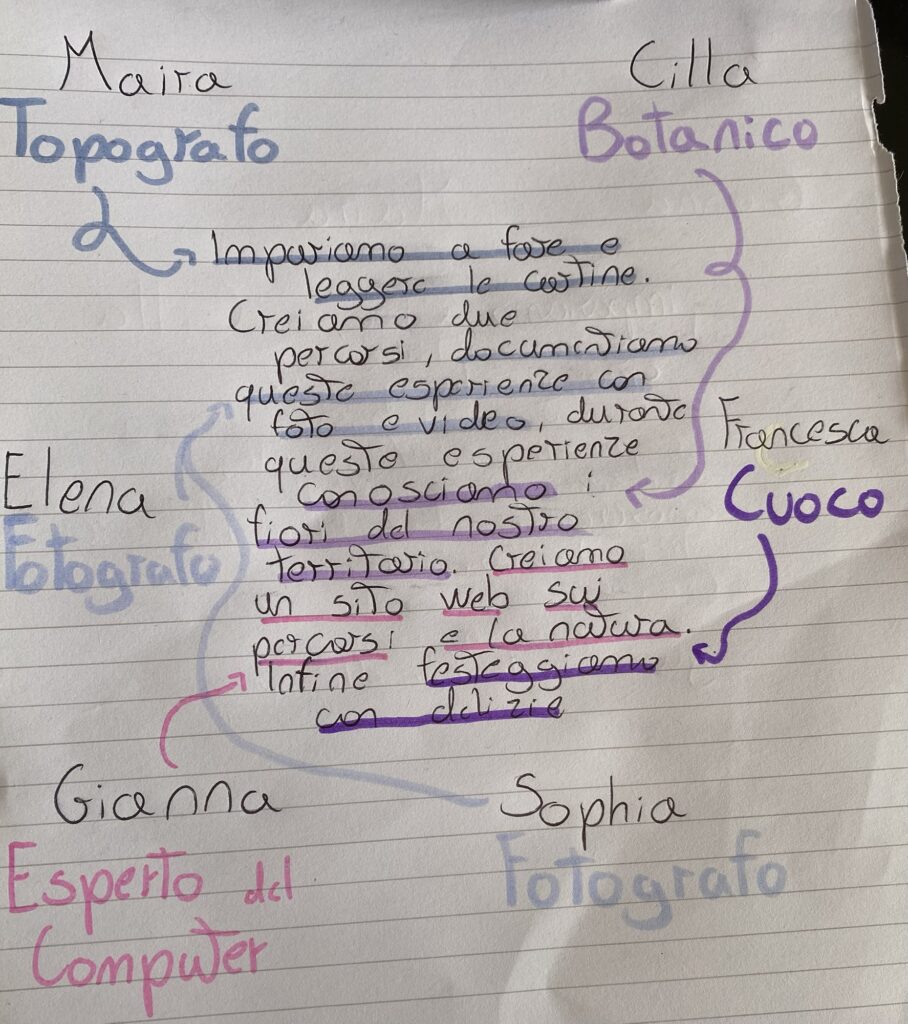 Maira
Cilla
Topografo
Botanico
Impariamo a fare e
leggere le cartine.
Creiamo due
percorsi, documentiamo
queste esperienze con
foto e video, durante
queste esperienze
conosciamo i
fiori del nostro
territorio. Creiamo
un sito web sui
percorsi e la natura.
Infine festeggiamo
con delizie
Francesca
Cuoco
Elena
Fotografo
Gianna
Esperto del
Computer
Sophia
Fotografo